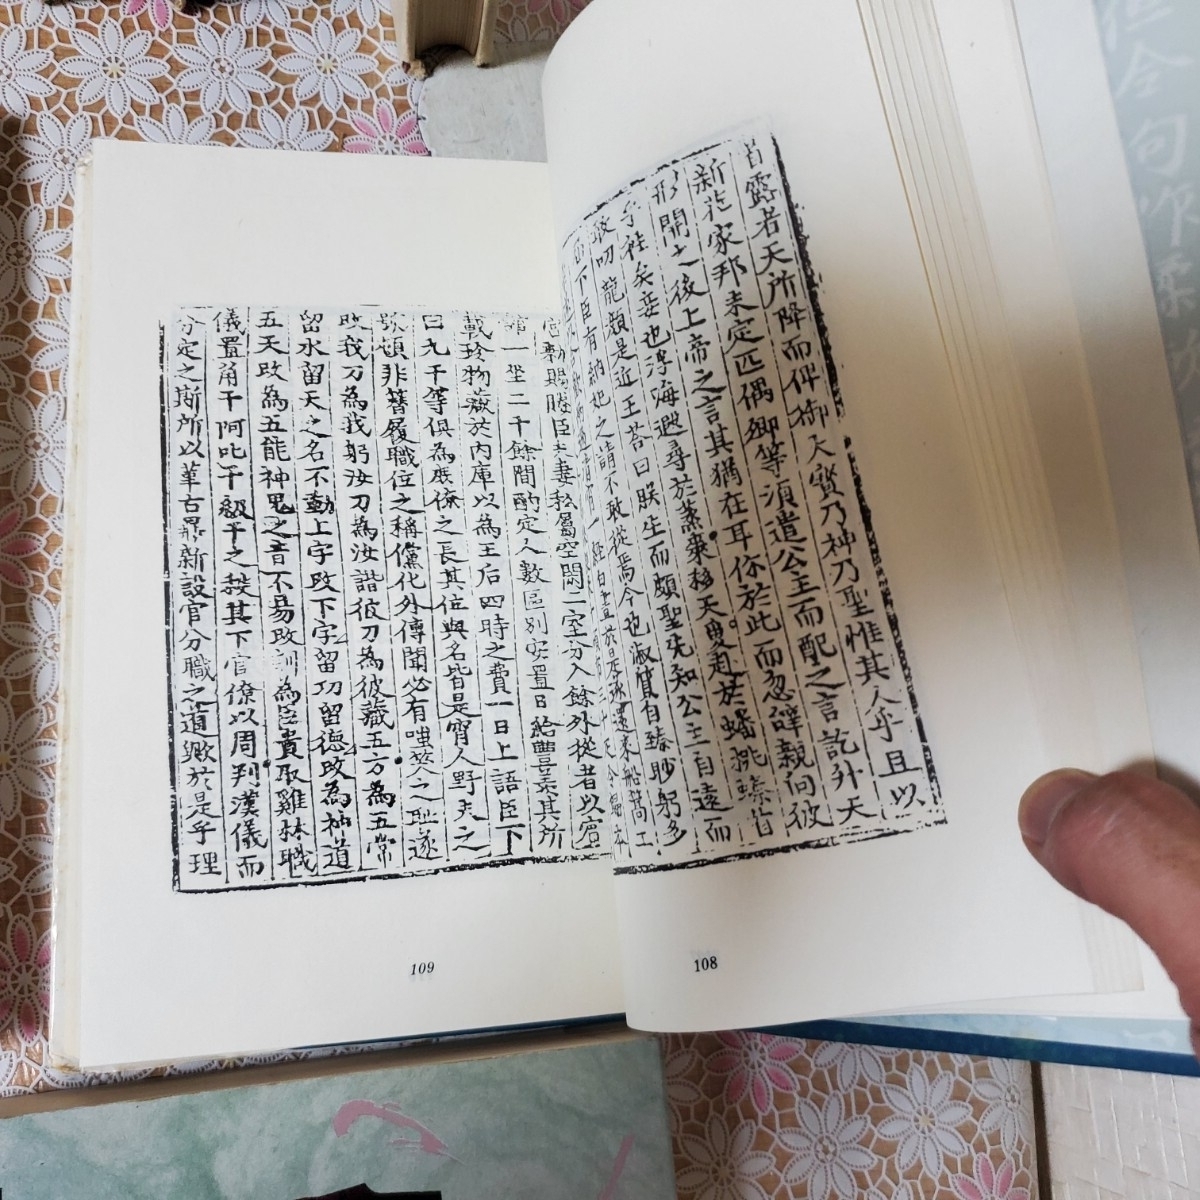 首露者天所降而俾御大寶乃神乃聖惟其人乎且以
新莅家邦未定匹偶卿等湏遣公主而配之言訖升天
形開之後上帝之言其猶在耳你於此而忽辝親向彼
乎往矣妾也浮海遐尋於蒸棗移天夐赴於蟠桃螓首
敢叨龍顔是近王荅曰朕生而頗聖先知公主自遠而
屆下臣有納妃之請不敢從焉今也淑質自臻眇躬多
過清宵一經白晝於是遂還來船篙工
宫勑賜媵臣夫妻私屬空閑二室分入餘外從者以賓
舘一坐二十餘間酌定人數區別安置日給豊羡其所
載珍物藏於内庫以為王后四時之費一日上語臣下
曰九干等俱為庶僚之長其位與名皆是宵人野夫之
號頓非簪履職位之稱儻化外傳聞必有嗤笑之耻遂
改我刀為我躬汝刀為汝諧彼刀為彼藏五方為五常
留水留天之名不動上字改下字留功留德改為神道
五天改為五能神鬼之音不易改訓為臣貴取雞林職
儀置角干阿叱干級干之秩其下官僚以周判漢儀而
分定之斯所以革古鼎新設官分職之道歟於是乎理
109
108